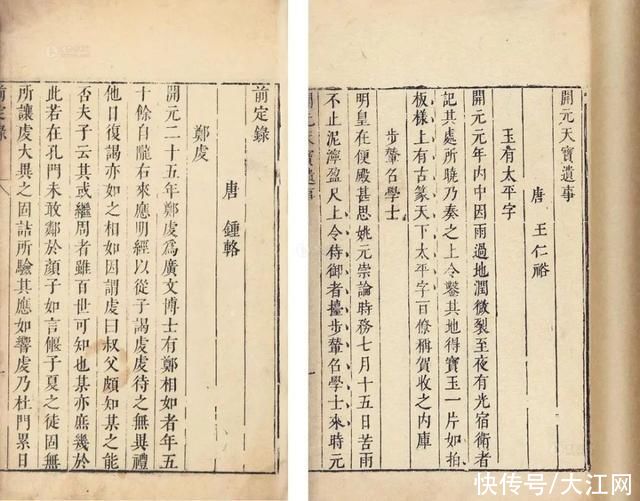 開元天寶遺事
唐 王仁裕
玉有太平字
開元元年内中因雨過地潤微裂至夜有光宿衛者
記其處所曉乃奏之上令鑿其地得寶玉一片如拍
板樣上有古篆天下太平字百僚稱賀收之内庫
步輦召學士
明皇在便殿甚思姚元崇論時務七月十五日苦雨
不止泥濘盈尺上令侍御者擡步輦召學士來時元
前定錄
唐 鍾輅
鄭虔
開元二十五年鄭虔爲廣文博士有鄭相如者年五
十餘自隴右來應明經以從子謁虔虔待之無異禮
他日復謁亦如之相如因謂虔曰叔父頗知某之能
否夫子云其或繼周者雖百世可知也某亦庶幾於
此若在孔門未敢鄰於顔子如言偃子夏之徒固無
所讓虔大異之因詰所驗其應如響虔乃杜門累日
前定錄
快传号/大江网